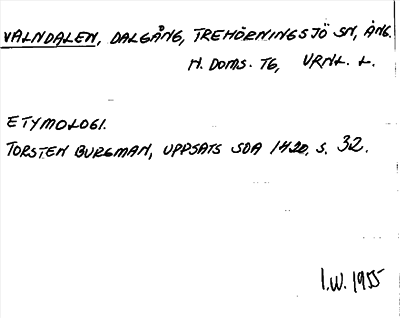 VALNDALEN, DALGÅNG, TREHÖRNINGSJÖ SN, ÅNG.
N. DOMS. TG, VRML. L.
ETYMOLOGI.
TORSTEN BURGMAN, UPPSATS SDA 1420, S. 32.
I.W. 1955